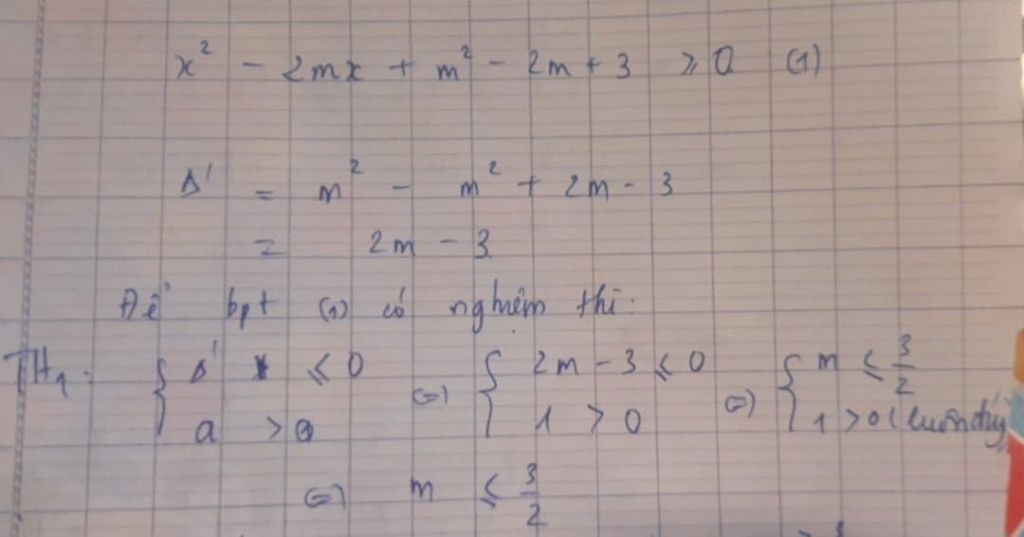 x² - 2mx + m² - 2m + 3 ⩾ 0 (1)
Δ' = m² - m² + 2m - 3
= 2m - 3
Để bpt (1) có nghiệm thì:
TH₁: { Δ' ⩽ 0 (=) { 2m - 3 ⩽ 0 (=) { m ⩽ 3/2
a > 0 1 > 0 1 > 0 (luôn đúng
(=) m ⩽ 3/2